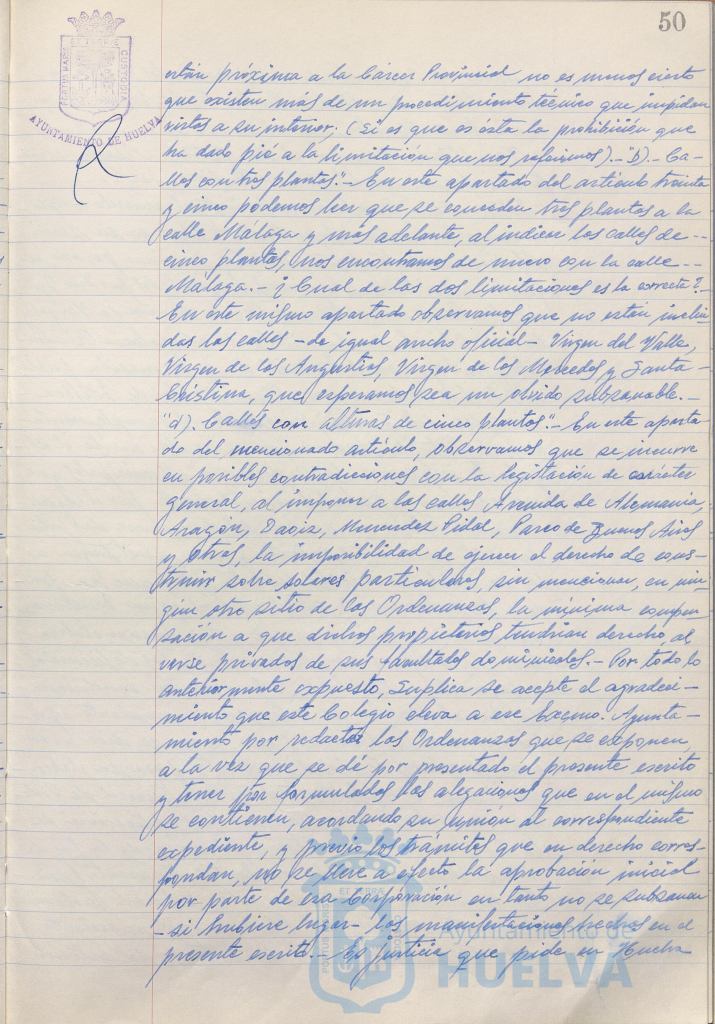 50
PORTUS MARIS ET TERRAE CUSTODIA
AYUNTAMIENTO DE HUELVA
están próxima a la Cárcel Provincial no es menos cierto
que existen más de un procedimiento técnico que impidan
vistas a su interior. (Si es que es ésta la prohibición que
ha dado pié a la limitación que nos referimos).- "D).- Ca-
lles con tres plantas".- En este apartado del artículo treinta
y cinco podemos leer que se conceden tres plantas a la
calle Málaga y más adelante, al indicar las calles de --
cinco plantas, nos encontramos de nuevo con la calle --
Málaga.- ¿Cual de las dos limitaciones es la correcta?.-
En este mismo apartado observamos que no están inclui-
das las calles - de igual ancho oficial- Virgen del Valle,
Virgen de las Angustias, Virgen de las Mercedes y Santa
Cristina, que esperamos sea un olvido subsanable.-
"d). Calles con alturas de cinco plantas".- En este aparta-
do del mencionado artículo, observamos que se incurre
en posibles contradicciones con la legislación de carácter
general, al imponer a las calles Avenida de Alemania,
Aragón, Daoiz, Menendez Pidal, Paseo de Buenos Aires
y otras, la imposibilidad de ejercer el derecho de cons-
truir sobre solares particulares, sin mencionar, en nin-
gún otro sitio de las Ordenanzas, la mínima compen-
sación a que dichos propietarios tendrían derecho al
verse privados de sus facultades dominicales.- Por todo lo
anteriormente expuesto, Suplica se acepte el agradeci-
miento que este Colegio eleva a ese Excmo. Ayunta-
miento por redactar las Ordenanzas que se exponen,
a la vez que se dé por presentado el presente escrito
y tener por formuladas las alegaciones que en el mismo
se contienen, acordando su unión al correspondiente
expediente, y previo los trámites que en derecho corres-
pondan, no se lleve a efecto la aprobación inicial
por parte de esa Corporación en tanto no se subsanan
-si hubiere lugar- las manifestaciones hechas en el
presente escrito.- Es justicia que pide en Huelva
Ayuntamiento de
HUELVA